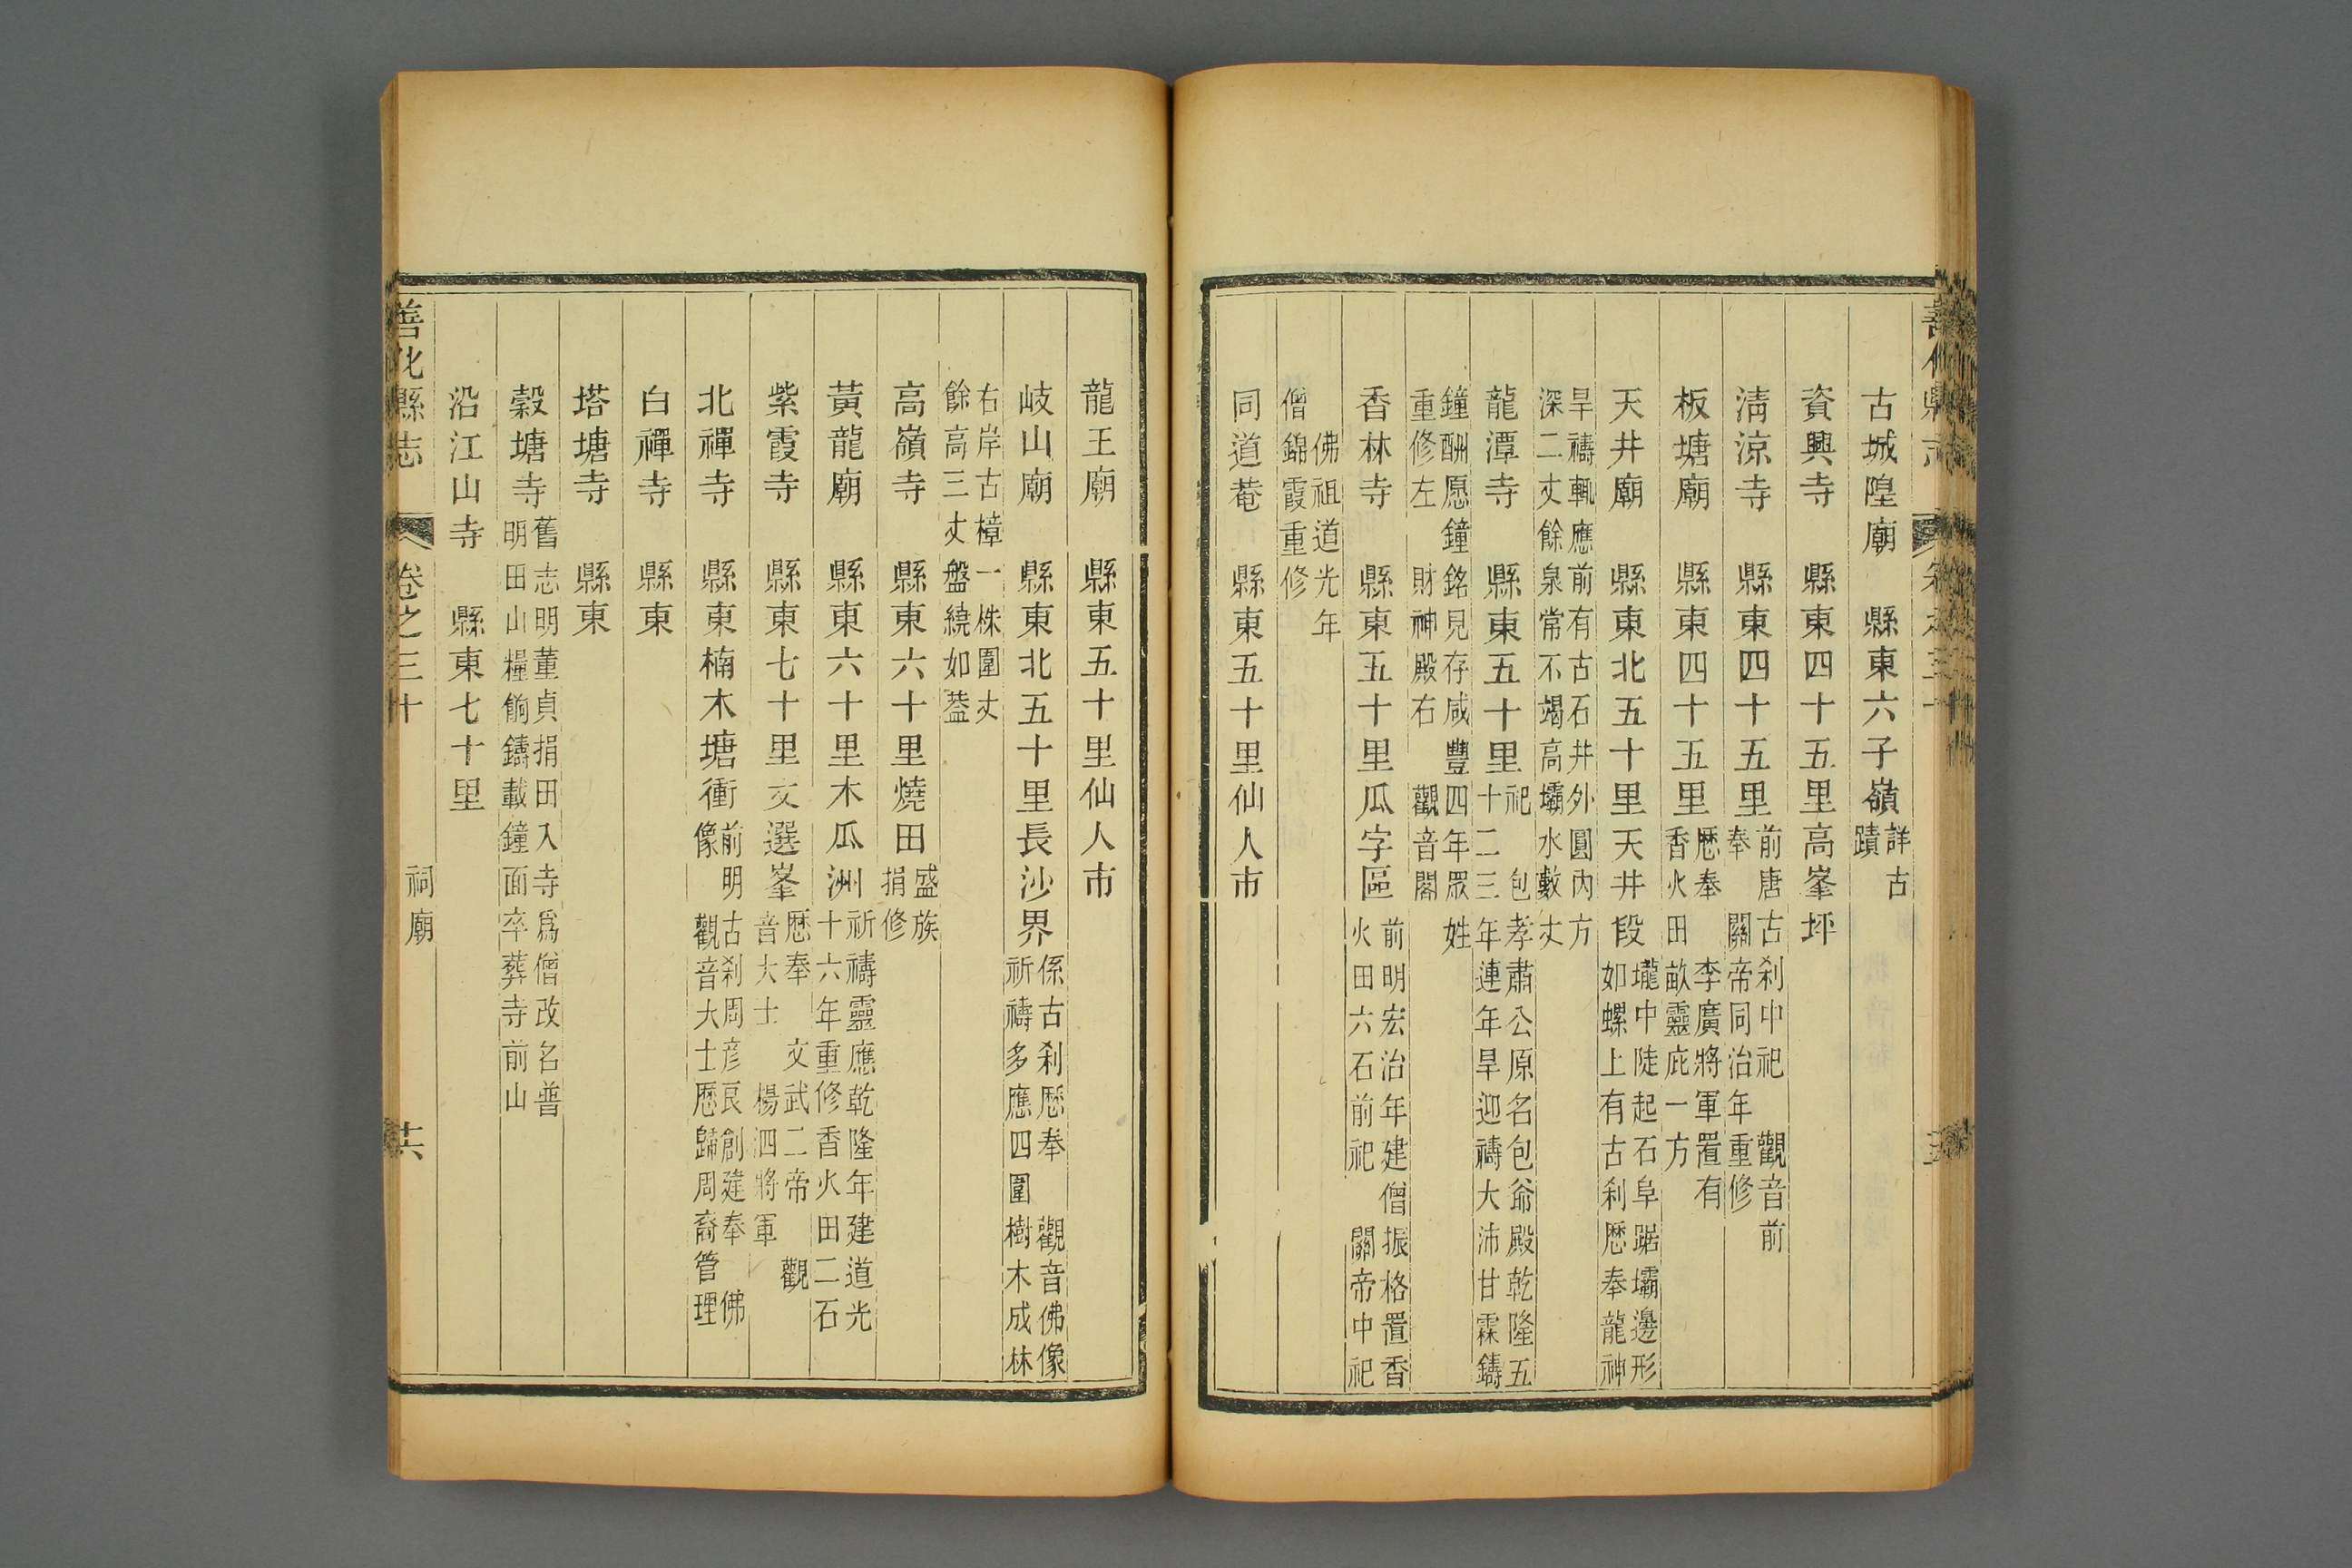 古城隍廟　縣東六子嶺詳古
蹟
資興寺　縣東四十五里高峯坪
清涼寺　縣東四十五里前唐古刹中祀　觀音前
奉　關帝同治年重修
板塘廟　縣東四十五里歷奉　李廣將軍置有
香火田　畝靈庇一方
天井廟　縣東北五十里天井段壠中陡起石阜踞壩邊形
如螺上有古刹歷奉龍神
旱禱輒應前有古石井外圓內方
深二丈餘泉常不竭高壩水數丈
龍潭寺　縣東五十里祀　包孝肅公原名包爺殿乾隆五
十二三年連年旱迎禱大沛甘霖鑄
鐘酬愿鐘銘見存咸豐四年眾姓
重修左　財神殿右　觀音閣
香林寺　縣東五十里瓜字區前明宏治年建僧振格置香
火田六石前祀　關帝中祀
佛祖道光年
僧錦霞重修
同道菴　縣東五十里仙人市
龍王廟　縣東五十里仙人市
岐山廟　縣東北五十里長沙界係古刹歷奉　觀音佛像
祈禱多應四圍樹木成林
右岸古樟一株圍丈
餘高三丈盤繞如蓋
高嶺寺　縣東六十里燒田盛族
捐修
黃龍廟　縣東六十里木瓜洲祈禱靈應乾隆年建道光
十六年重修香火田二石
紫霞寺　縣東七十里文選峯歷奉　文武二帝　觀
音大士　楊泗將軍
北禪寺　縣東楠木塘衝前明古刹周彥良創建奉　佛
像　觀音大士歷歸周裔管理
白禪寺　縣東
塔塘寺　縣東
穀塘寺舊志明董貞捐田入寺爲僧改名普
明田山糧餉鑄載鐘面卒葬寺前山
沿江山寺　縣東七十里
善化縣志　卷之三十　祠廟　共